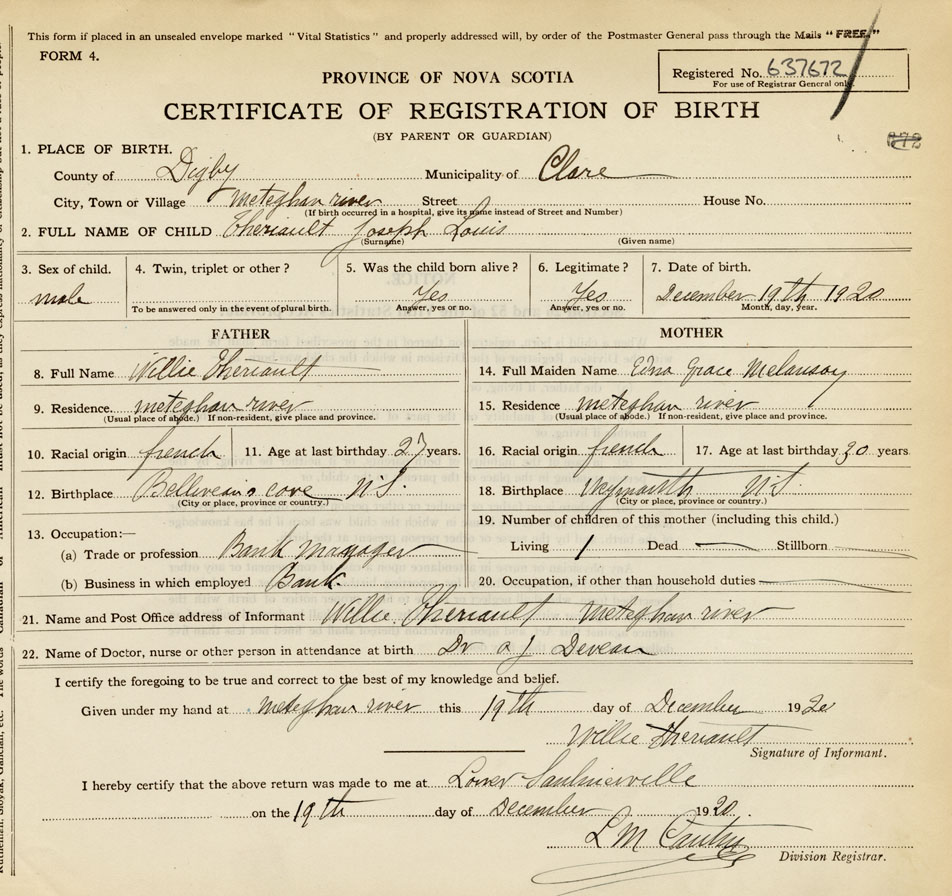 This form if placed in an unsealed envelope marked "Vital Statistics" and properly addressed will, by order of the Postmaster General pass through the Mails "FREE."
FORM 4.
PROVINCE OF NOVA SCOTIA
Registered No. 637672
For use of Registrar General only.
CERTIFICATE OF REGISTRATION OF BIRTH
(BY PARENT OR GUARDIAN)
672
1. PLACE OF BIRTH.
County of Digby Municipality of Clare
City, Town or Village meteghan river Street House No.
(If birth occurred in a hospital, give its name instead of Street and Number)
2. FULL NAME OF CHILD Theriault Joseph Louis
(Surname) (Given name)
3. Sex of child. 4. Twin, triplet or other? 5. Was the child born alive? 6. Legitimate? 7. Date of birth.
male Yes Yes December 19th 1920
To be answered only in the event of plural birth. Answer, yes or no. Answer, yes or no. Month, day, year.
FATHER MOTHER
8. Full Name Willie Theriault 14. Full Maiden Name Edna Grace Melanson
9. Residence. meteghan river 15. Residence meteghan river
(Usual place of abode.) If non-resident, give place and province. (Usual place of abode.) If non-resident, give place and province.
10. Racial origin french 11. Age at last birthday 27 years. 16. Racial origin french 17. Age at last birthday 30 years
12. Birthplace Belliveau's cove N.S. 18. Birthplace Weymouth N.S.
(City or place, province or country.) (City or place, province or country.)
13. Occupation:— 19. Number of children of this mother (including this child.)
(a) Trade or profession Bank manager Living 1 Dead — Stillborn —
(b) Business in which employed Bank. 20. Occupation, if other than household duties —
21. Name and Post Office address of Informant Willie Theriault Meteghan river
22. Name of Doctor, nurse or other person in attendance at birth Dr a J Deveau
I certify the foregoing to be true and correct to the best of my knowledge and belief.
Given under my hand at meteghan river this 19th day of December 1920
Willie Theriault
Signature of Informant.
I hereby certify that the above return was made to me at Lower Saulnierville
on the 19th day of December 1920.
L M
Division Registrar.